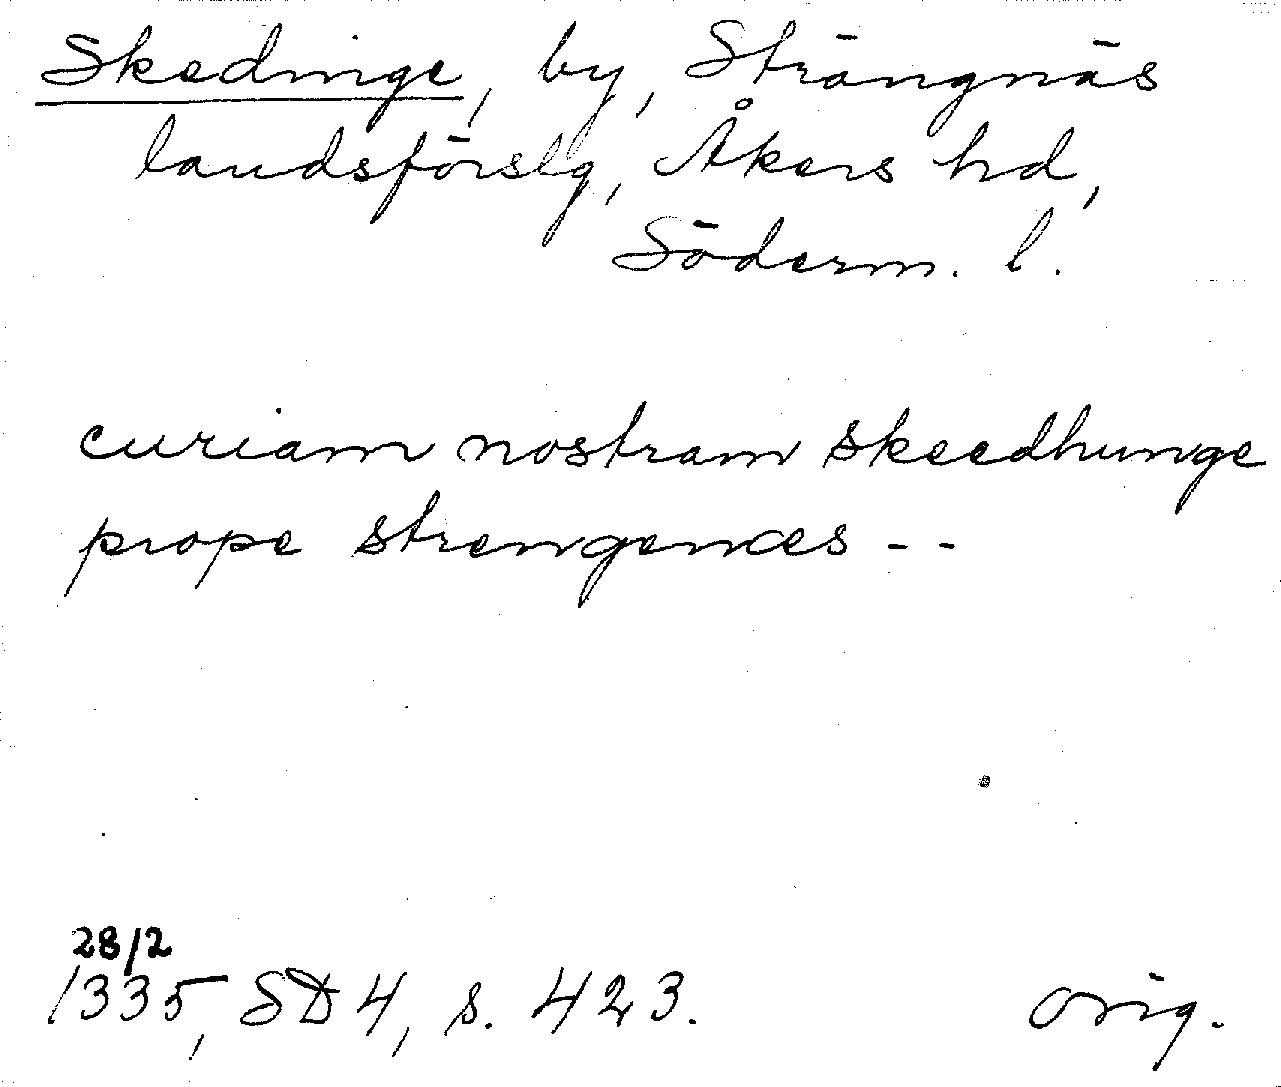 Skedinge, by, Strängnäs
landsförslg, Åkers hd,
Söderm. l.
curiam nostram skeedhunge
prope strengenæs - -
28/2
1335, SD 4, s. 423. orig.